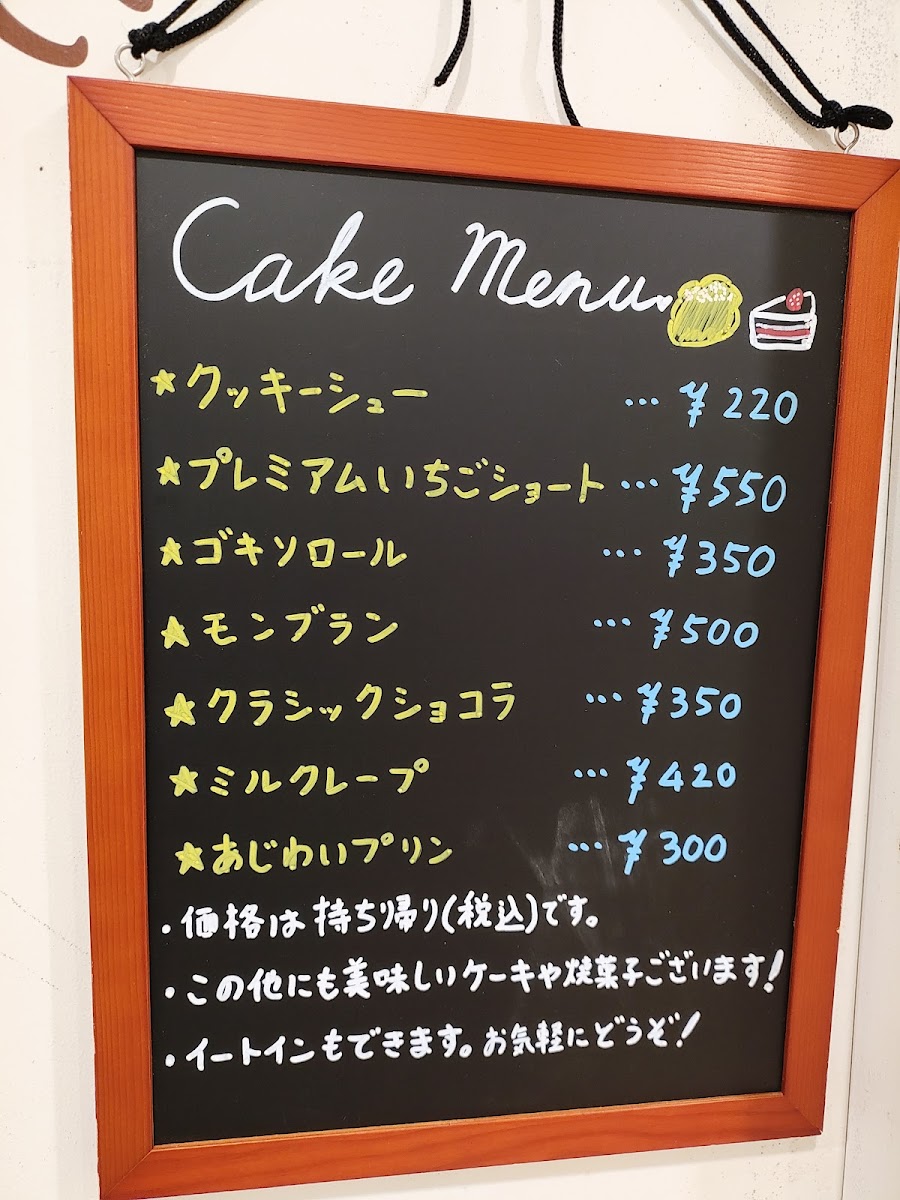 Cake Menu
★クッキーシュー … ¥220
★プレミアムいちごショート … ¥550
★ゴキソロール … ¥350
★モンブラン … ¥500
★クラシックショコラ … ¥350
★ミルクレープ … ¥420
★あじわいプリン … ¥300
・価格は持ち帰り(税込)です。
・この他にも美味しいケーキや焼菓子ございます!
・イートインもできます。お気軽にどうぞ!